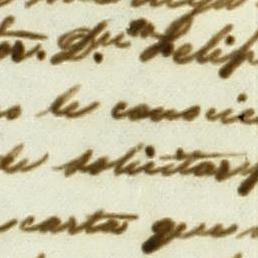 tor. D.n Felip
o le conocie
de solicitar
carta que